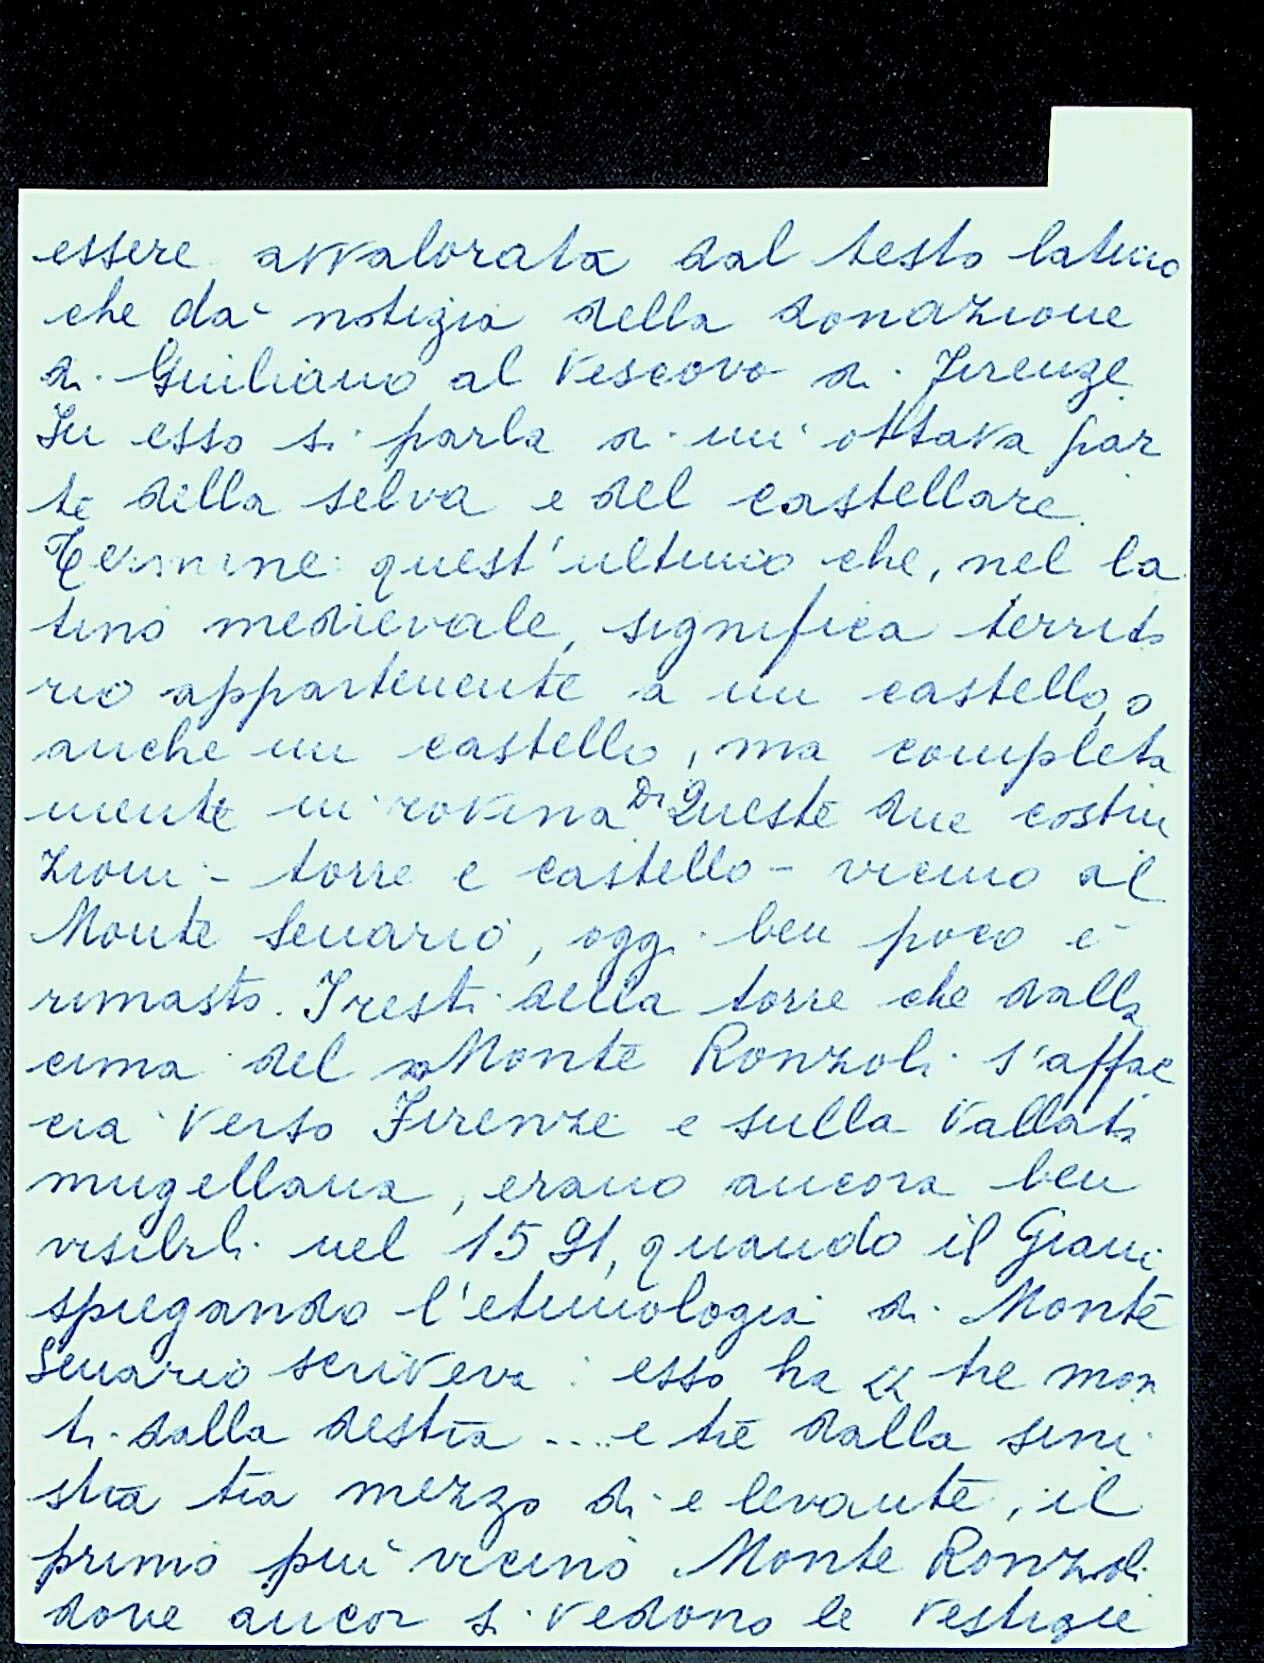 essere avvalorata dal testo latino
che dà notizia della donazione
di Giuliano al Vescovo di Firenze.
In esso si parla di un'ottava par
te della selva e del castellare.
Termine quest'ultimo che, nel la
tino medievale, significa territo
rio appartenente a un castello, o
anche un castello, ma completa
mente in rovina Di Queste due costru
zioni - torre e castello - vicino al
Monte Senario, oggi ben poco è
rimasto. I resti della torre che dalla
cima del Monte Ronzoli s'affac
cia verso Firenze e sulla Vallata
mugellana, erano ancora ben
visibili nel 1591, quando il Giani
spiegando l'etimologia di Monte
Senario scriveva: esso ha « tre mon
ti dalla destra .... e tre dalla sini
stra tra mezzo dì e levante, il
primo più vicino Monte Ronzoli
dove ancor si vedono le vestigie